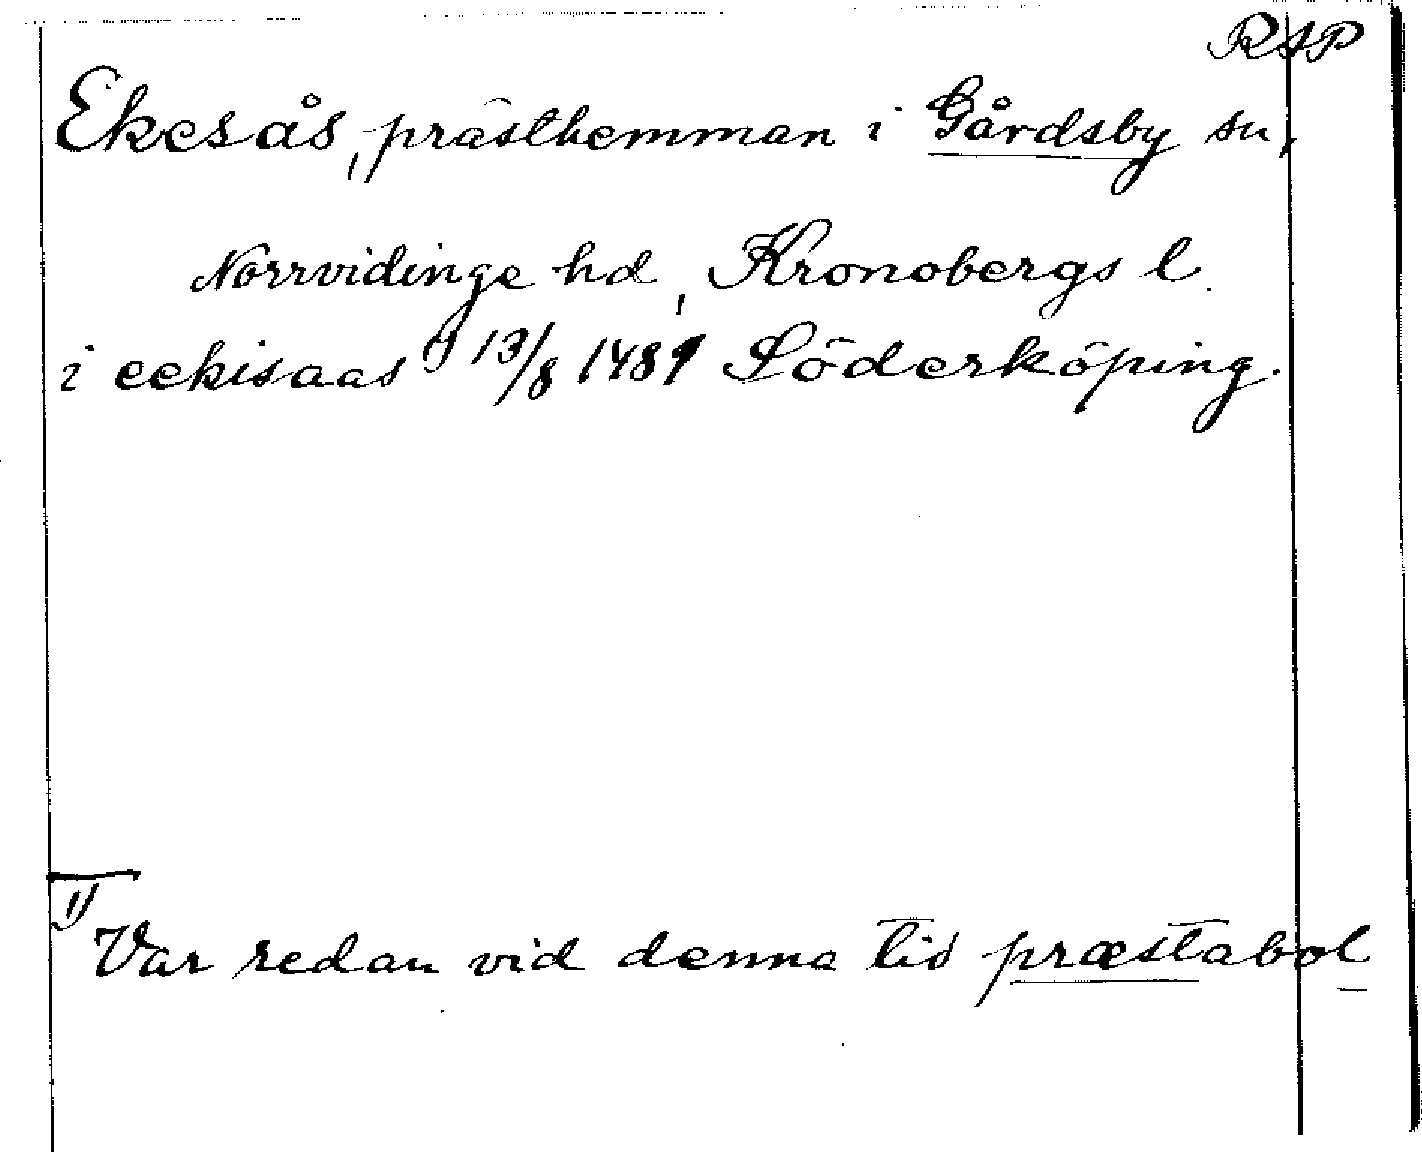 RAP
Ekesås, prästhemman i Gårdsby sn,
Norrvidinge hd, Kronobergs l.
i eekisaas 13/8 1489 Söderköping.
1)
Var redan vid denna tid præstabol